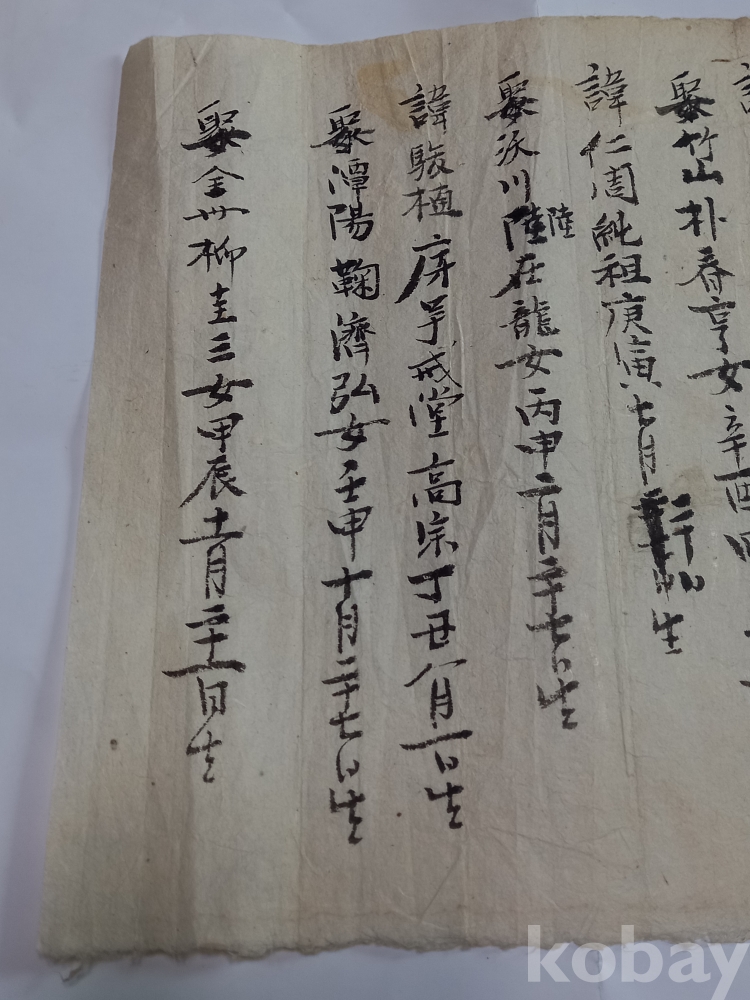 諱
娶竹山朴春亨女辛酉四
諱仁周純祖庚寅七月二十四日生
娶沃川陸在龍女丙申二月二十七日生
陸
諱駿植 戒堂高宗丁丑八月一日生
娶潭陽鞠濟弘女壬申十月二十七日生
娶全州柳圭三女甲辰十一月二十一日生
kobay